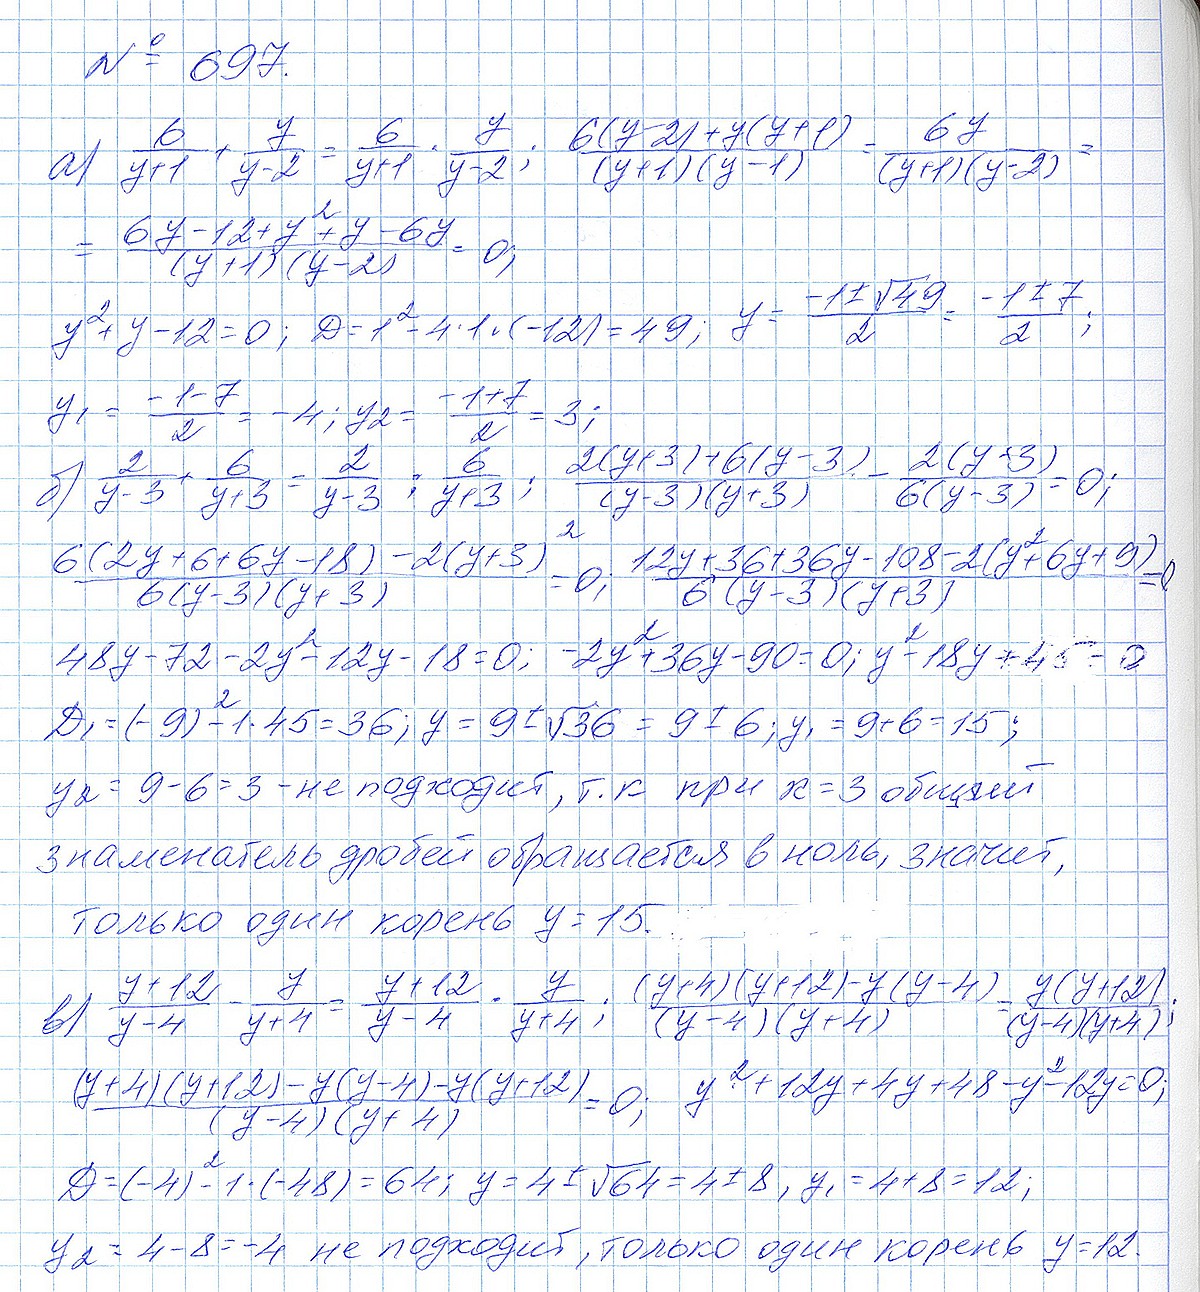 № 697.
а) 6/(y+1) + y/(y-2) = 6/(y+1) · y/(y-2); (6(y-2)+y(y+1))/((y+1)(y-1)) = 6y/((y+1)(y-2)) =
= (6y-12+y²+y-6y)/((y+1)(y-2)) = 0;
y²+y-12=0; D=1²-4·1·(-12)=49; y= (-1±√49)/2 = (-1±7)/2;
y₁ = (-1-7)/2 = -4; y₂ = (-1+7)/2 = 3;
б) 2/(y-3) + 6/(y+3) = 2/(y-3) : 6/(y+3); (2(y+3)+6(y-3))/((y-3)(y+3)) - 2(y+3)/(6(y-3)) = 0;
(6(2y+6+6y-18)-2(y+3)²)/(6(y-3)(y+3)) = 0; (12y+36+36y-108-2(y²+6y+9))/(6(y-3)(y+3)) = 0
48y-72-2y²-12y-18=0; -2y²+36y-90=0; y²-18y+45=0
D₁=(-9)²-1·45=36; y=9±√36=9±6; y₁=9+6=15;
y₂=9-6=3 - не подходит, т.к при x=3 общий
знаменатель дробей обращается в ноль, значит,
только один корень y=15.
в) (y+12)/(y-4) - y/(y+4) = (y+12)/(y-4) · y/(y+4); ((y+4)(y+12)-y(y-4))/((y-4)(y+4)) = y(y+12)/((y-4)(y+4));
((y+4)(y+12)-y(y-4)-y(y+12))/((y-4)(y+4)) = 0; y²+12y+4y+48-y²-12y=0;
D=(-4)²-1·(-48)=64; y=4±√64=4±8, y₁=4+8=12;
y₂=4-8=-4 не подходит, только один корень y=12.